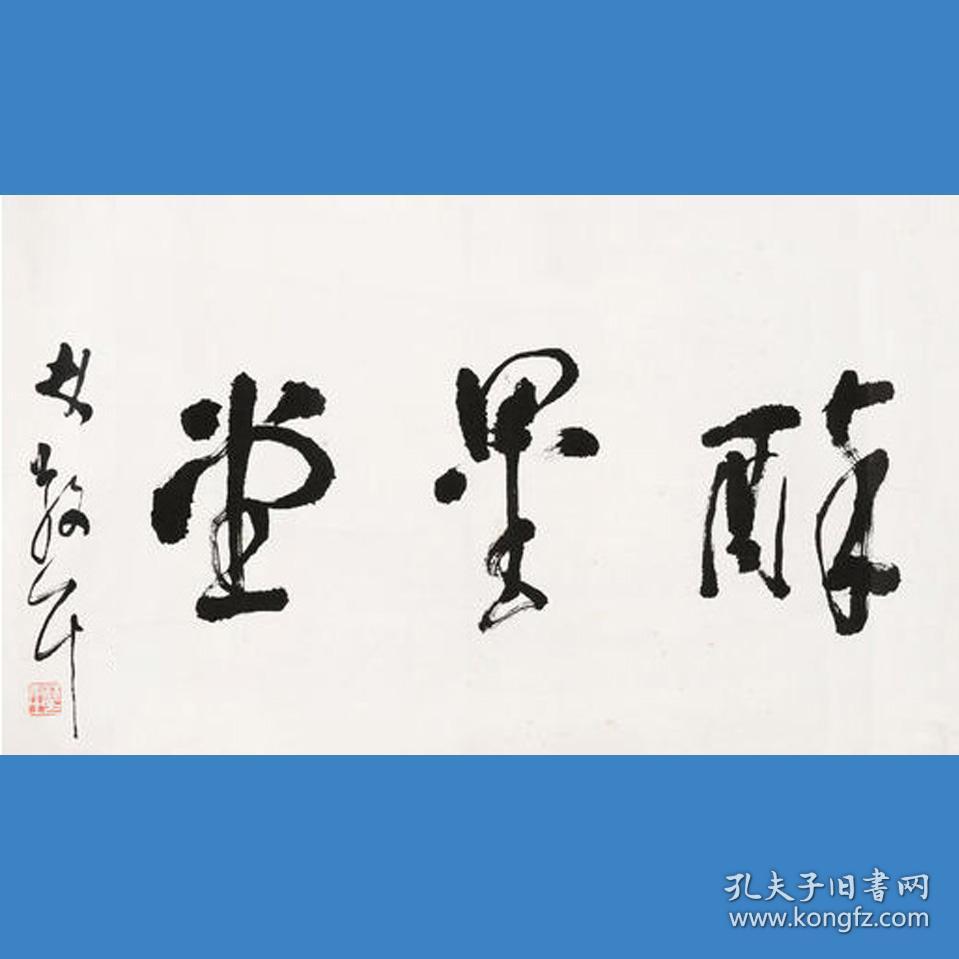 醉墨堂
林散耳
孔夫子旧書网
www.kongfz.com